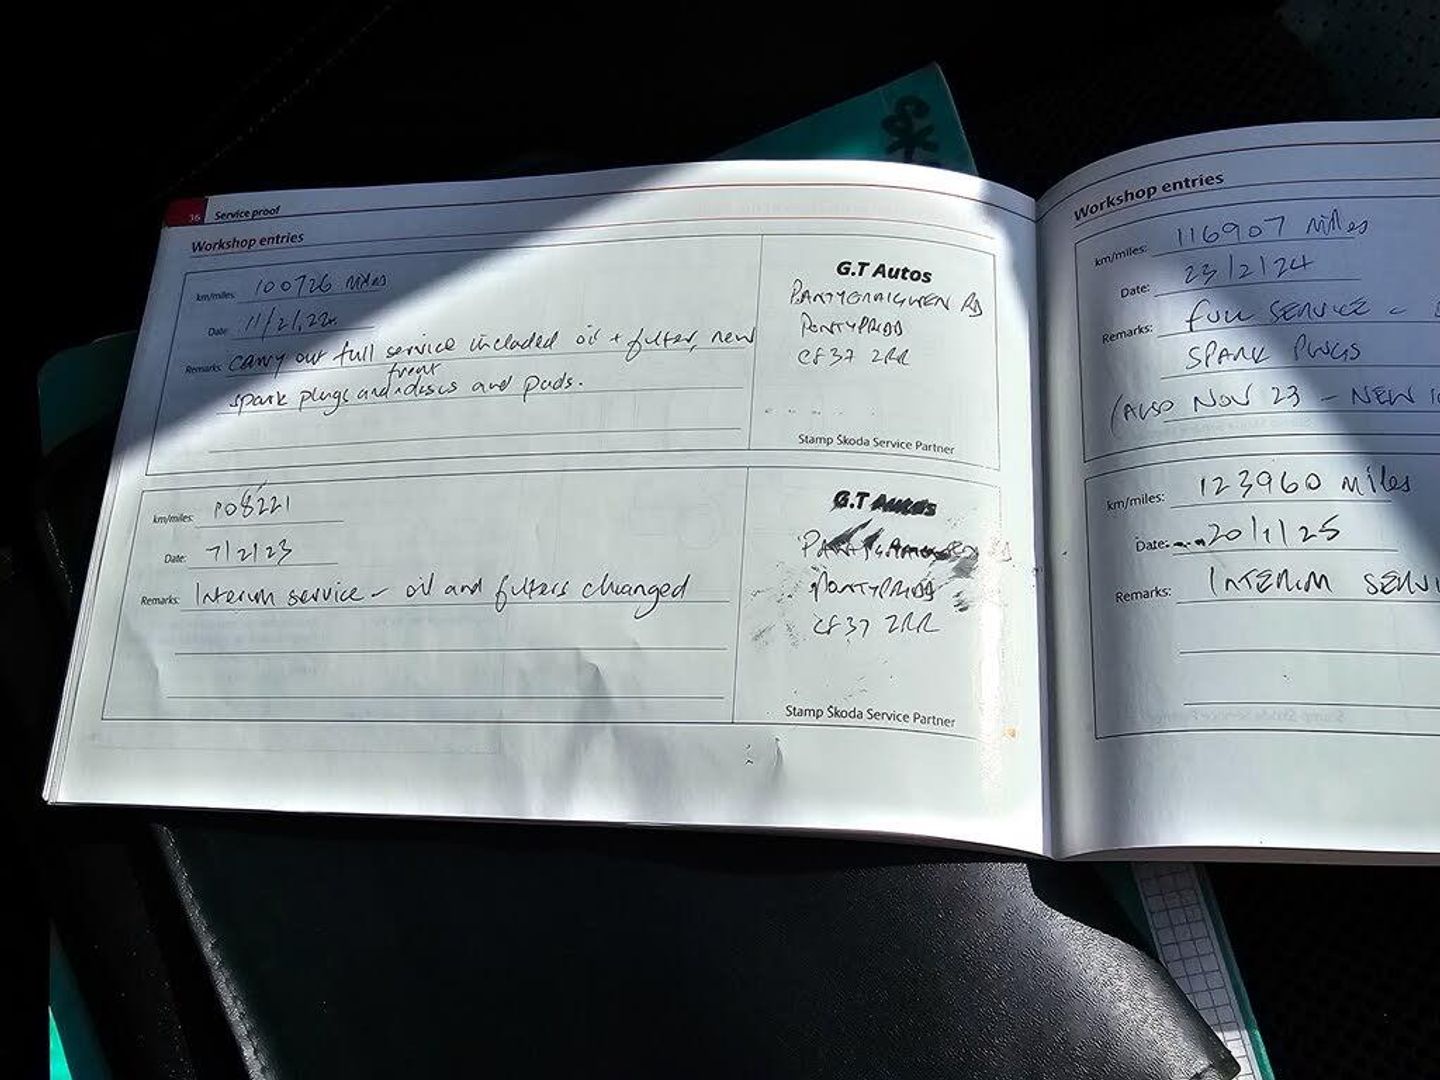 36 Service proof
Workshop entries
km/miles: 100726 miles
Date: 11/2/22.
Remarks: carry out full service included oil + filter, new
front
spark plugs and discs and pads.
G.T Autos
PANTYGRAIGWEN RD
PONTYPRIDD
CF37 2RR
Stamp Škoda Service Partner
km/miles: 108221
Date: 7/2/23
Remarks: Interim service - oil and filters changed
G.T Autos
PONTYPRIDD
CF37 2RR
Stamp Škoda Service Partner
Workshop entries
km/miles: 116907 miles
Date: 23/2/24
Remarks: FULL SERVICE -
SPARK PLUGS
(ALSO NOV 23 - NEW
km/miles: 123960 miles
Date: 20/1/25
Remarks: INTERIM SERVI